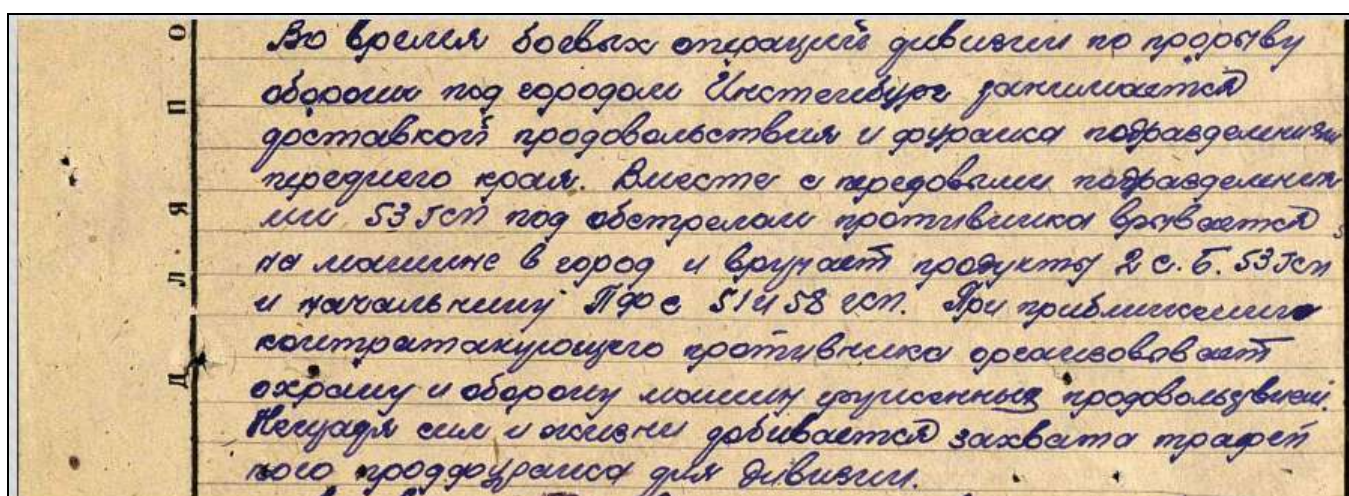 Во время боевых операций дивизии по прорыву
обороны под городом Инстенбург занимается
доставкой продовольствия и фуража подразделениям
переднего края. Вместе с передовыми подразделения-
ми 53 гсп под обстрелом противника врывается
на машине в город и вручает продукты 2 с.б. 53 гсп
и начальнику ПФС 51 и 58 гсп. При приближении
контратакующего противника организовывает
охрану и оборону машин груженных продовольствием.
Нещадя сил и жизни добивается захвата трофей
ного продфуража для дивизии.
О
П
Я
Л
Д